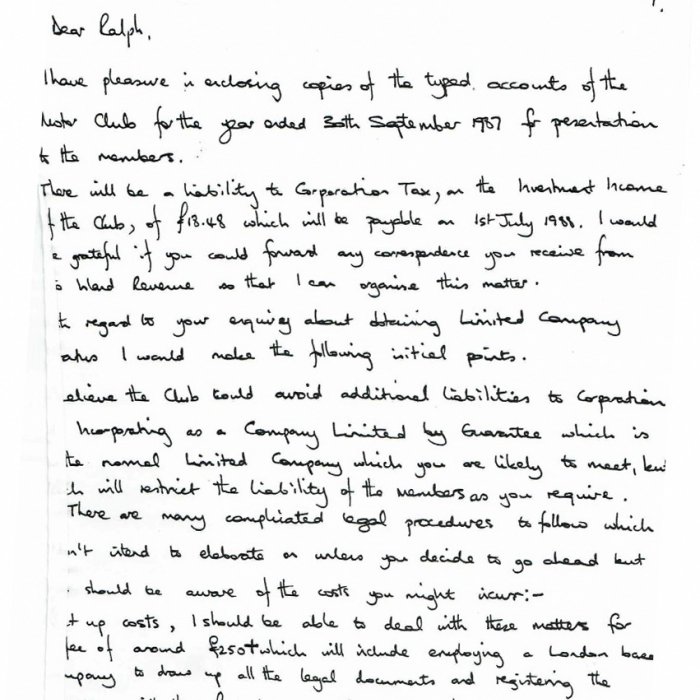 1.
Dear Ralph,
I have pleasure in enclosing copies of the typed accounts of the
Motor Club for the year ended 30th September 1987 for presentation
to the members.
There will be a liability to Corporation Tax, on the Investment Income
f the Club, of £13.48 which will be payable on 1st July 1988. I would
e grateful if you could forward any correspondence you receive from
Inland Revenue so that I can organise this matter.
th regard to your enquiry about obtaining Limited Company
atus I would make the following initial points.
elieve the Club could avoid additional liabilities to Corporation
Incorporating as a Company Limited by Guarantee which is
the normal Limited Company which you are likely to meet, but
ch will restrict the liability of the members as you require.
There are many complicated legal procedures to follow which
n't intend to elaborate on unless you decide to go ahead but
should be aware of the costs you might incurr:-
t up costs, I should be able to deal with these matters for
fee of around £250+ which will include employing a London base
mpany to draw up all the legal documents and registering the